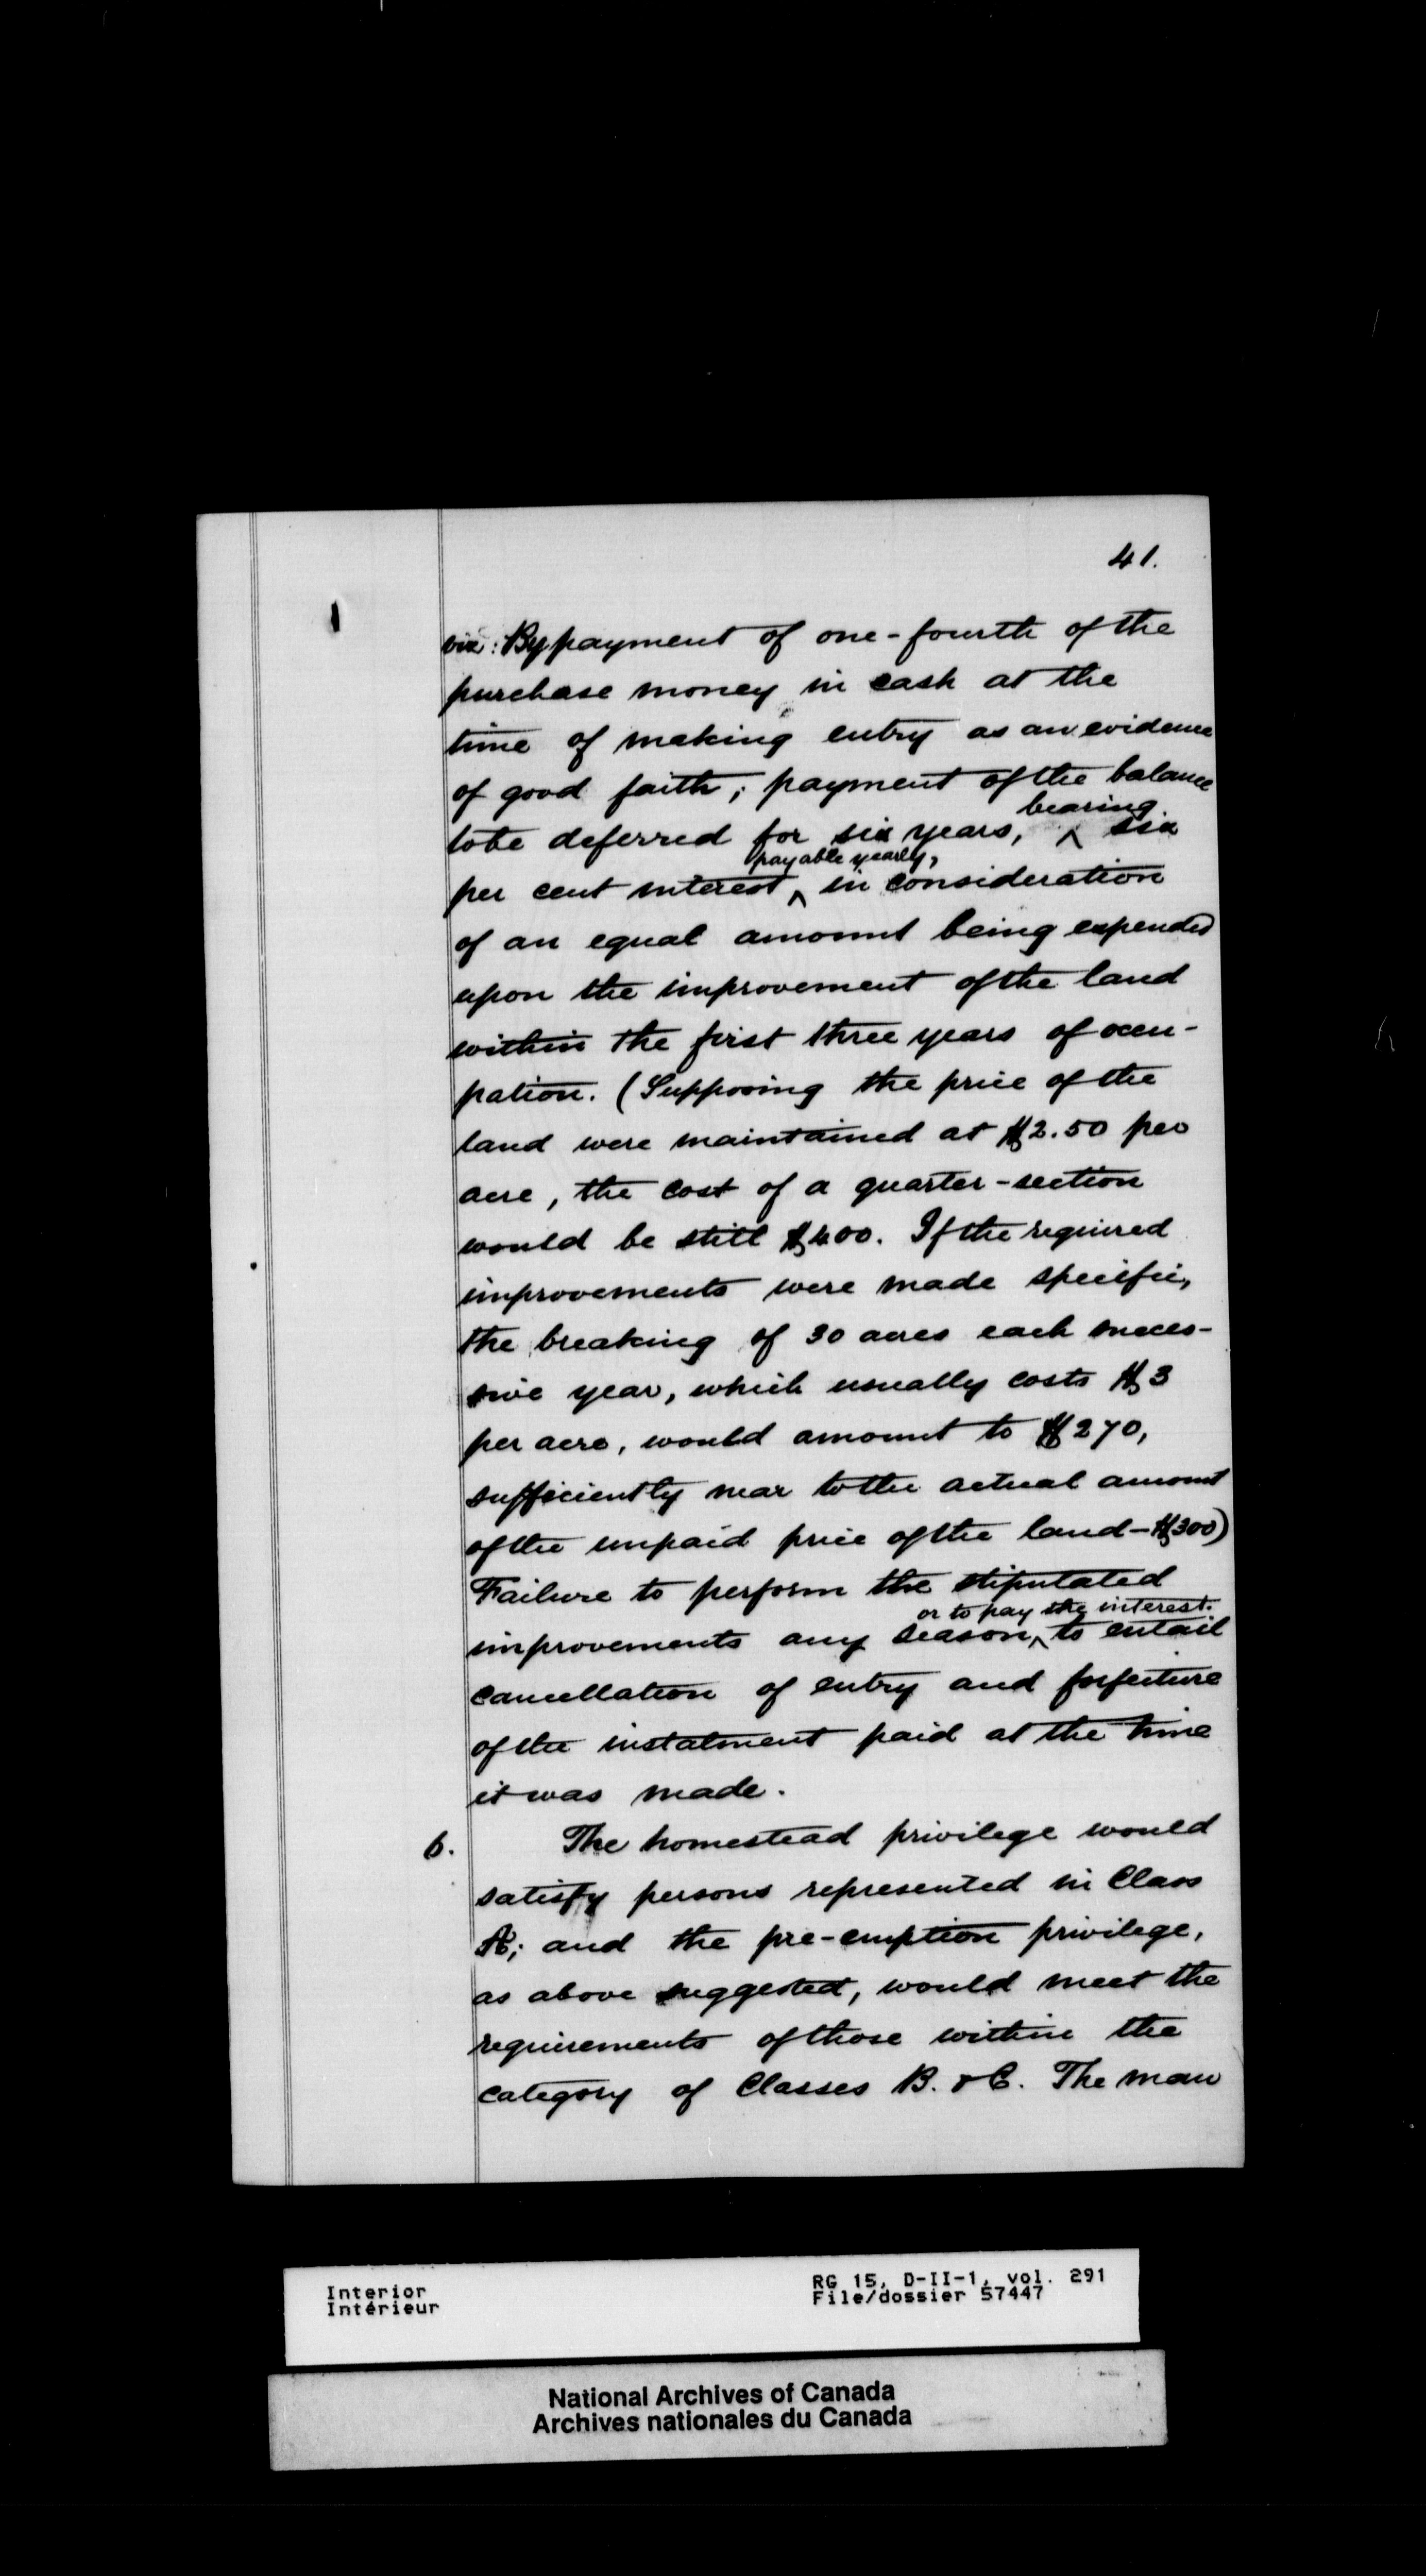 41.
viz: By payment of one-fourth of the
purchase money in cash at the
time of making entry as an evidence
of good faith; payment of the balance
bearing
to be deferred for six years, ^ six
payable yearly,
per cent interest ^ in consideration
of an equal amount being expended
upon the improvement of the land
within the first three years of occu-
pation. (Supposing the price of the
land were maintained at $2.50 per
acre, the cost of a quarter-section
would be still $400. If the required
improvements were made specific,
the breaking of 30 acres each succes-
sive year, which usually costs $3
per acre, would amount to $270,
sufficiently near to the actual amount
of the unpaid price of the land - $300)
Failure to perform the stipulated
or to pay the interest.
improvements any season, ^ to entail
cancellation of entry and forfeiture
of the instalment paid at the time
it was made.
6. The homestead privilege would
satisfy persons represented in Class
A; and the pre-emption privilege,
as above suggested, would meet the
requirements of those within the
category of Classes B. & C. The man
Interior
Intérieur
RG 15, D-II-1, vol. 291
File/dossier 57447
National Archives of Canada
Archives nationales du Canada